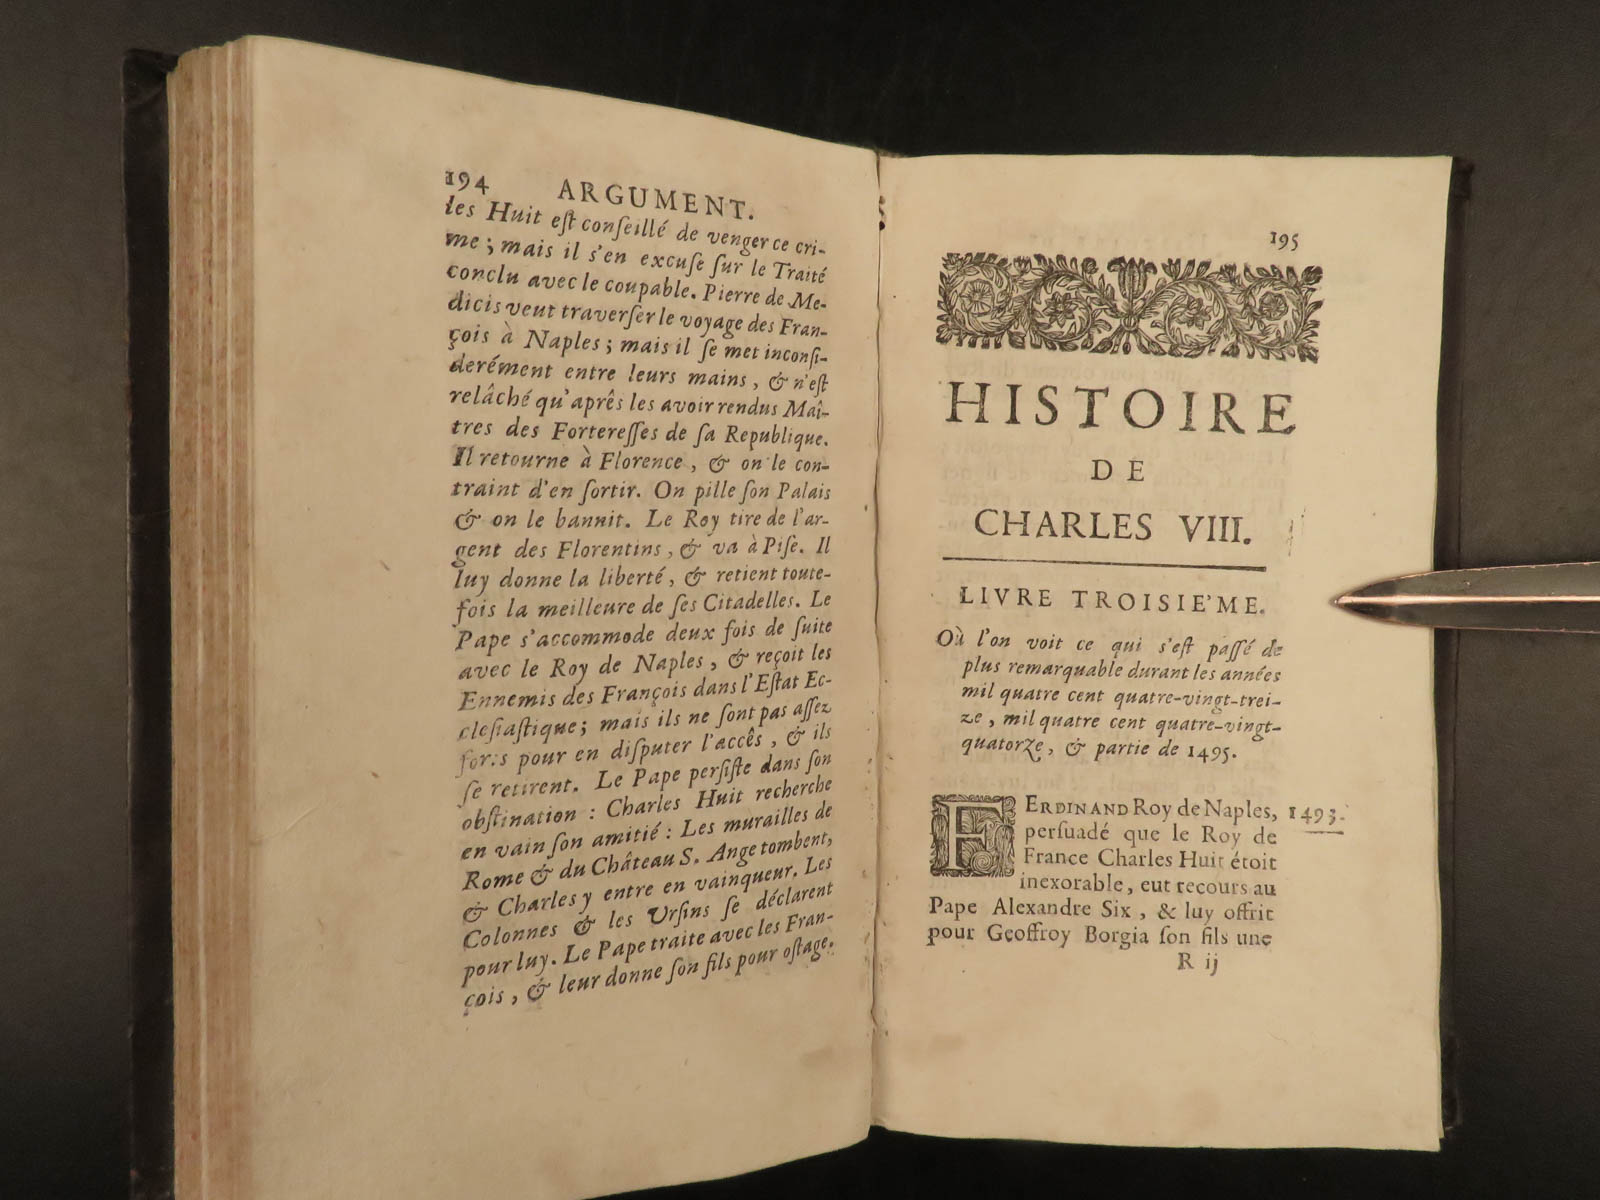 194 ARGUMENT.
les Huit eſt conſeillé de venger ce cri-
me ; mais il s'en excuſe ſur le Traité
conclu avec le coupable. Pierre de Me-
dicis veut traverſer le voyage des Fran-
çois à Naples ; mais il ſe met inconſi-
derément entre leurs mains, & n'eſt
relâché qu'aprês les avoir rendus Maî-
tres des Fortereſſes de ſa Republique.
Il retourne à Florence, & on le con-
traint d'en ſortir. On pille ſon Palais
& on le bannit. Le Roy tire de l'ar-
gent des Florentins, & va à Piſe. Il
luy donne la liberté, & retient toute-
fois la meilleure de ſes Citadelles. Le
Pape s'accommode deux fois de ſuite
avec le Roy de Naples, & reçoit les
Ennemis des François dans l'Eſtat Ec-
cleſiaſtique; mais ils ne ſont pas aſſez
forts pour en diſputer l'accês, & ils
ſe retirent. Le Pape perſiſte dans ſon
obſtination : Charles Huit recherche
en vain ſon amitié : Les murailles de
Rome & du Château S. Ange tombent,
& Charles y entre en vainqueur. Les
Colonnes & les Urſins ſe déclarent
pour luy. Le Pape traite avec les Fran-
çois, & leur donne ſon fils pour oſtage.
195
HISTOIRE
DE
CHARLES VIII.
LIVRE TROISIE'ME.
Où l'on voit ce qui s'eſt paſſé de
plus remarquable durant les années
mil quatre cent quatre-vingt-trei-
ze, mil quatre cent quatre-vingt-
quatorze, & partie de 1495.
FERDINAND Roy de Naples, 1493.
perſuadé que le Roy de
France Charles Huit étoit
inexorable, eut recours au
Pape Alexandre Six, & luy offrit
pour Geoffroy Borgia ſon fils une
R ij